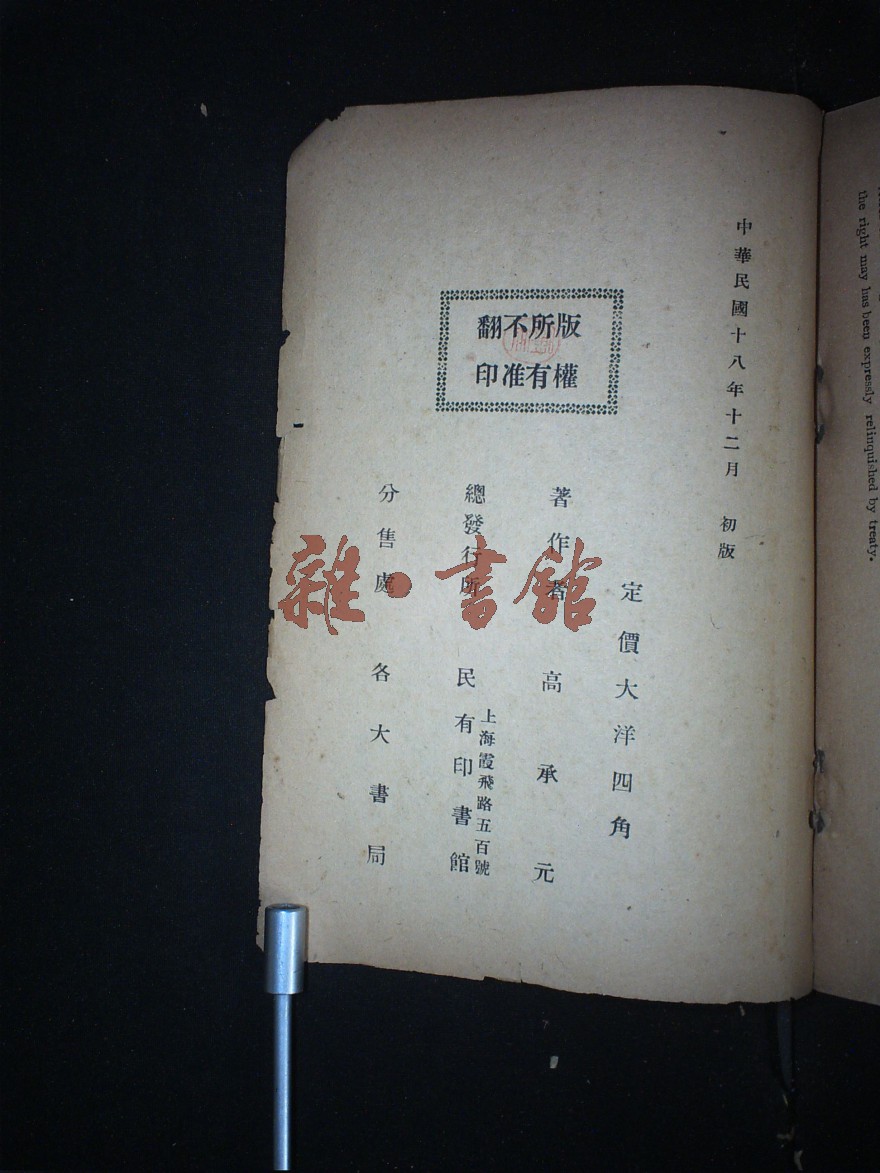 中華民國十八年十二月 初版
版權所有不准翻印
定價大洋四角
著作者 高承元
總發行所 民有印書館
上海霞飛路五百號
分售處 各大書局
雜·書館
the right may has been expressly relinquished by treaty.